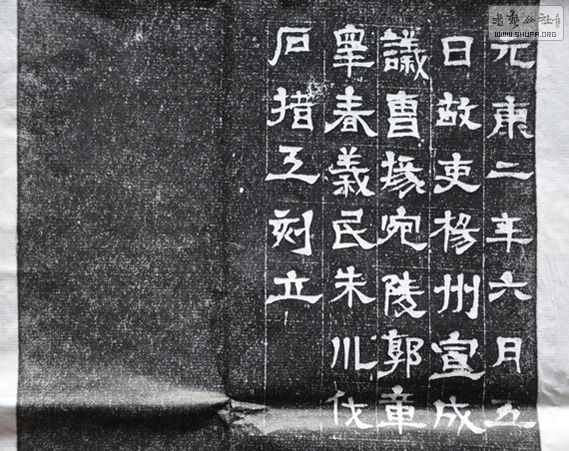 元康二年六月五
日故吏楊州宣成
議曹掾宛陵郭童
春義民朱川伐
石措工刻立
书艺公社
WWW.SHUFA.ORG